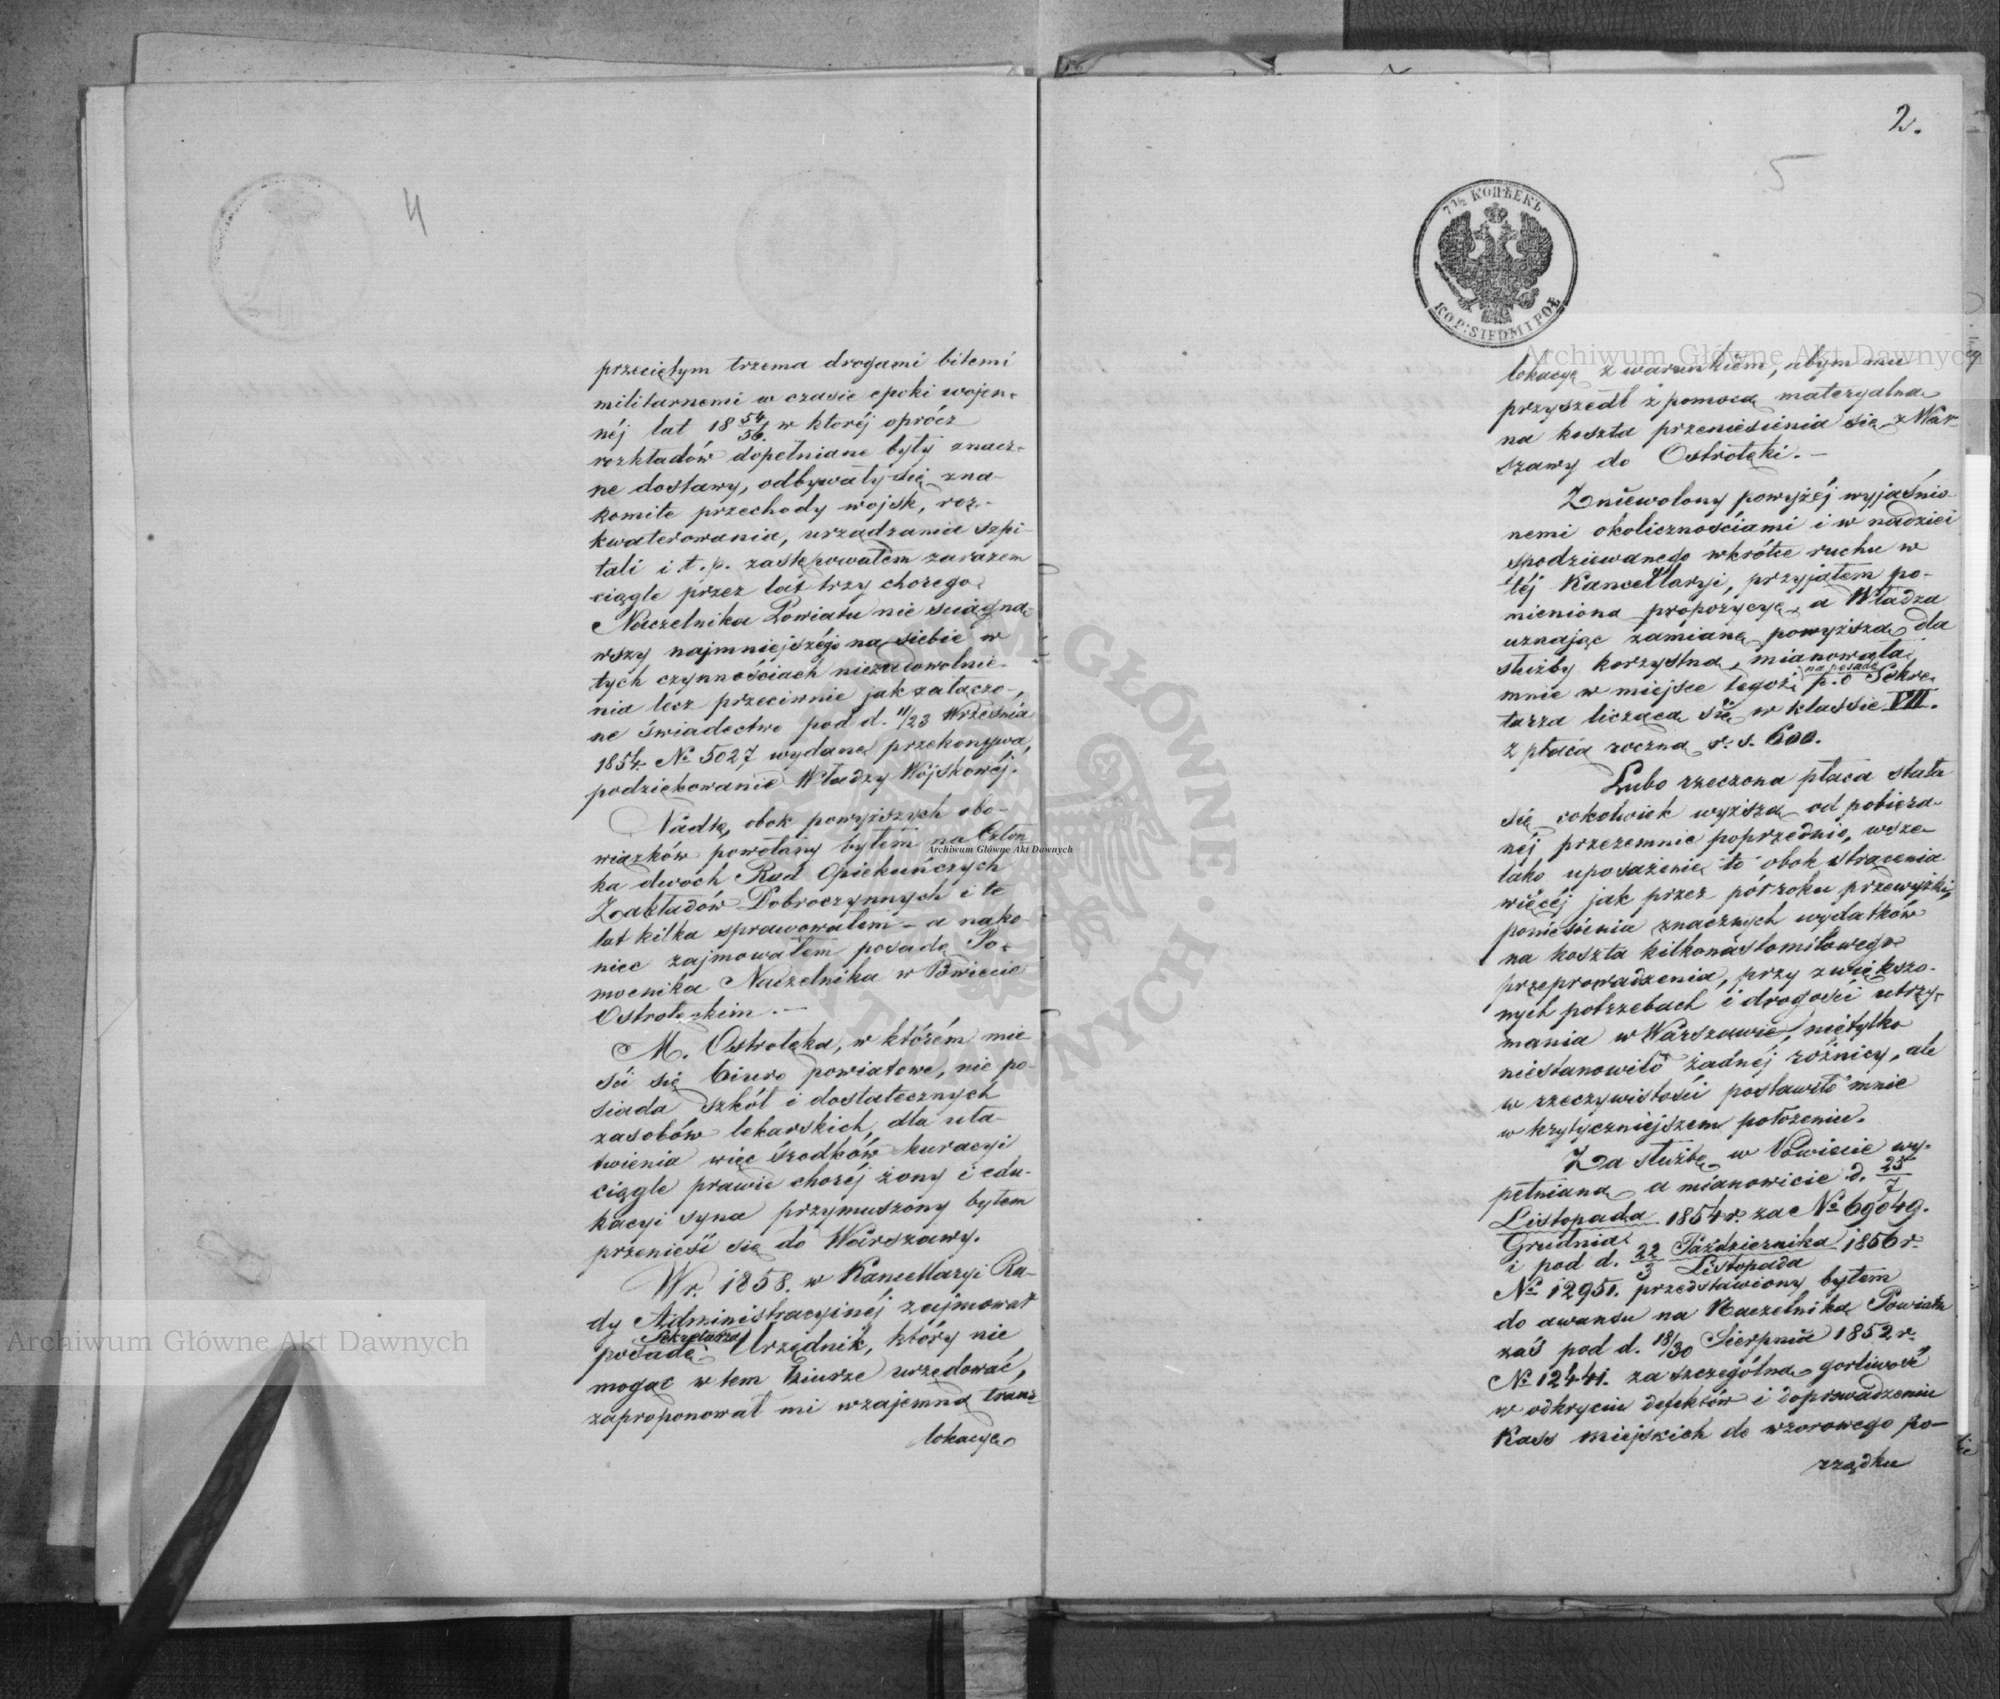 4
przeciętym trzema drogami bitemi
militarnemi w czasie epoki wojen-
néj lat 18 54/56. w któréj oprócz
rozkładów dopełniane były znacz-
ne dostawy, odbywały się zna-
komite przechody wojsk, roz-
kwaterowania, urządzania szpi-
tali i t. p. zastępowałem zarazem
ciągle przez lat trzy chorego
Naczelnika Powiatu nie sciągną-
wszy najmniejszégo na siebie w
tych czynnościach niezadowolnie-
nia lecz przeciwnie jak załączo-
ne świadectwo pod d. 11/23 Września
1854. № 5027 wydane przekonywa,
podziękowanie Władzy Wojskowéj.
Nadto, obok powyższych obo-
wiązków powołany byłem na Człon
ka dwóch Rad Opiekuńczych
Zakładów Dobroczynnych i te
lat kilka sprawowałem – a nako-
niec zajmowałem posadę Po-
mocnika Naczelnika w Powiecie
Ostrołęckim. —
M. Ostrołęka, w którém mie
ści się biuro powiatowe, nie po-
siada szkół i dostatecznych
zasobów lekarskich, dla uła-
twienia więc środków kuracyi
ciągle prawie choréj żony i edu-
kacyi syna przymuszony byłem
przenieść się do Warszawy.
W r. 1858. w Kancellaryi Ra-
dy Administracyjnéj zajmował
posadę Sekretarza Urzędnik, który nie
mogąc w tem biurze urzędować,
zaproponował mi wzajemną trans-
lokacyę
2.
5
7 1/2 КОПѢЕКЪ
KOP: SIEDM I POŁ
lokacyę z warunkiem, abym mu
przyszedł z pomocą materyalną
na koszta przeniesienia się z War-
szawy do Ostrołęki. —
Zniewolony powyżéj wyjaśnio-
nemi okolicznościami i w nadziei
spodziewanego wkrótce ruchu w
téj Kancellaryi, przyjąłem po-
mienioną propozycyę, a Władza
uznając zamianę powyższą dla
służby korzystną, mianowała
mnie w miejsce tegoż na posadę p. o Sekre-
tarza liczącą się w klassie VII.
z płacą roczną r. s. 600.
Lubo rzeczona płaca stała
się cokolwiek wyższą od pobiera-
néj przezemnie poprzednio, wsze-
lako uposażenie to obok strącenia
więcéj jak przez pół roku przewyżki,
poniesienia znacznych wydatków
na koszta kilkonastomilowego
przeprowadzenia, przy zwiększo-
nych potrzebach i drogości utrzy-
mania w Warszawie, nietylko
niestanowiło żadnéj różnicy, ale
w rzeczywistości postawiło mnie
w krytyczniejszem położeniu.
Za służbę w Powiecie wy-
pełnianą a mianowicie d. 25/7
Listopada/Grudnia 1854 r. za № 69049.
i pod d. 22/3 Października/Listopada 1856 r.
№ 12951. przedstawiony byłem
do awansu na Naczelnika Powiatu
zaś pod d. 18/30 Sierpnia 1852 r.
№ 12441. za szczególną gorliwość
w odkryciu defektów i doprowadzeniu
Kass miejskich do wzorowego po-
rządku
Archiwum Główne Akt Dawnych
Archiwum Główne Akt Dawnych
Archiwum Główne Akt Dawnych